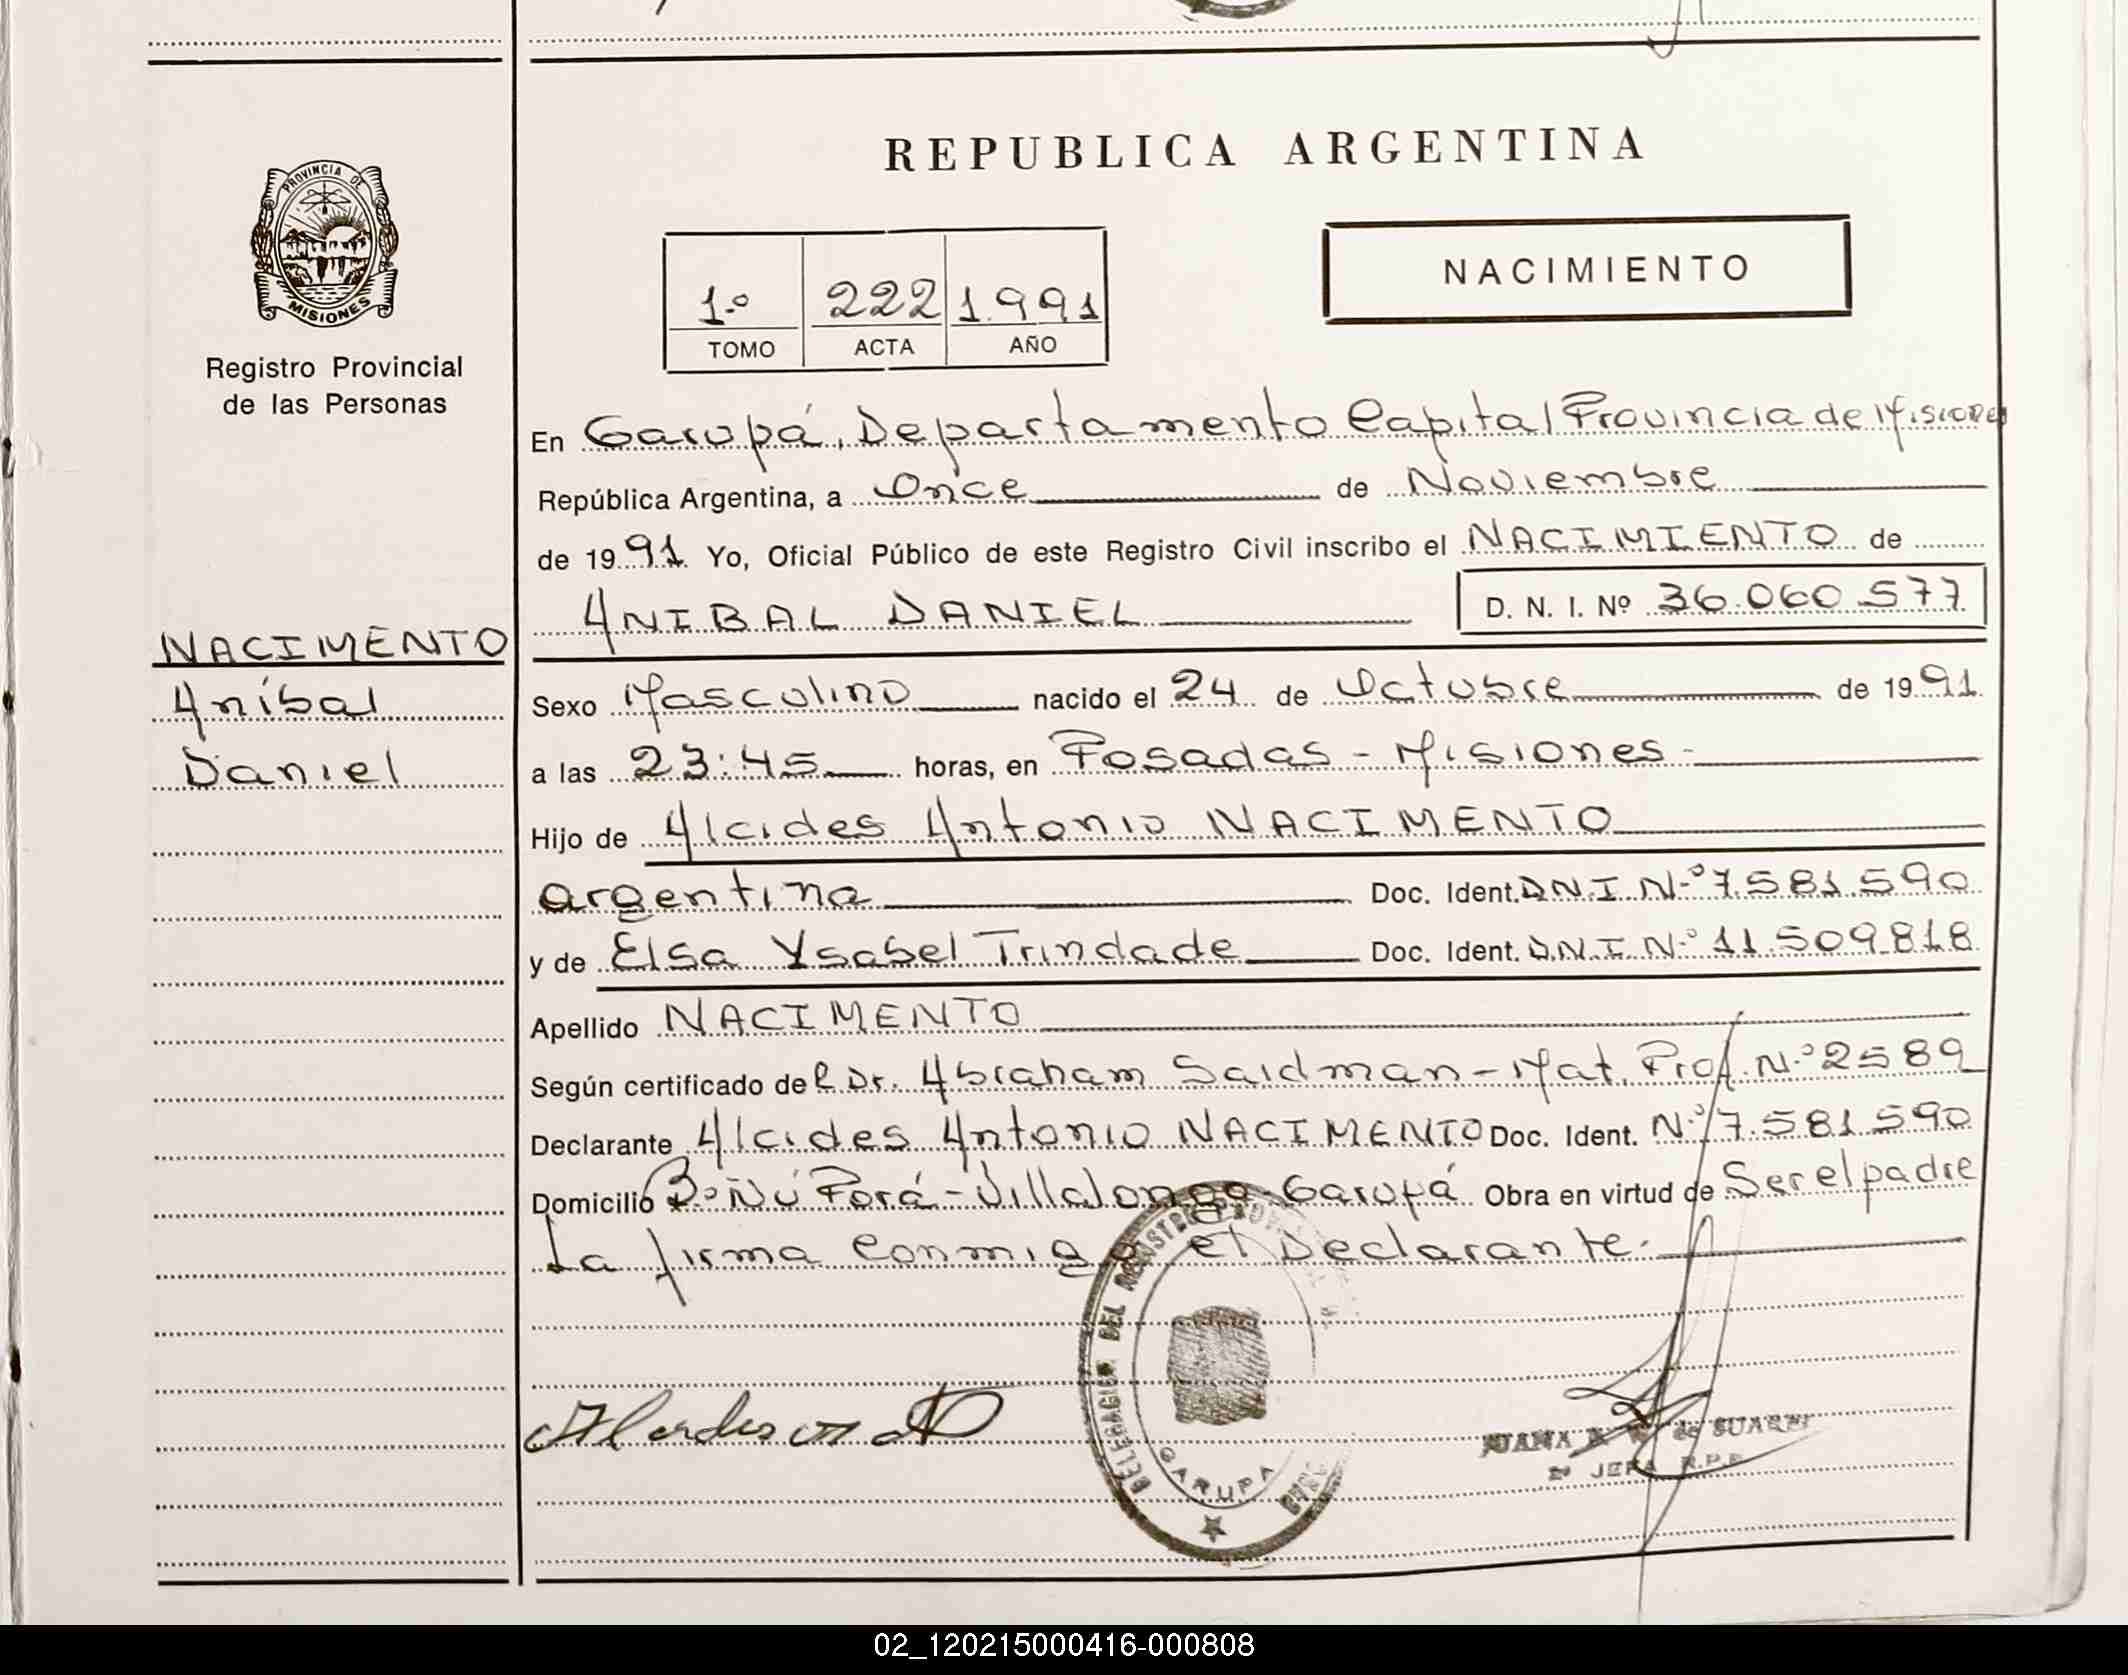 REPUBLICA ARGENTINA
PROVINCIA DE
MISIONES
Registro Provincial
de las Personas
1º 222 1.991
TOMO ACTA AÑO
NACIMIENTO
En Garupá, Departamento Capital Provincia de Misiones
República Argentina, a Once de Noviembre
de 1991 Yo, Oficial Público de este Registro Civil inscribo el NACIMIENTO de
ANIBAL DANIEL D. N. I. Nº 36.060.577
NACIMENTO
Aníbal
Daniel
Sexo Masculino nacido el 24 de Octubre de 1991
a las 23:45 horas, en Posadas - Misiones -
Hijo de Alcides Antonio NACIMENTO
argentina Doc. Ident. D.N.I. Nº 7.581.590
y de Elsa Ysabel Trindade Doc. Ident. D.N.I. Nº 11.509.818
Apellido NACIMENTO
Según certificado del Dr. Abraham Saidman - Mat. Prof. Nº 2589
Declarante Alcides Antonio NACIMENTO Doc. Ident. Nº 7.581.590
Domicilio Bº Ñú Porá - Villalonga - Garupá Obra en virtud de Ser el padre
La firma conmigo el Declarante.
DELEGACION DEL REGISTRO
GARUPA
JUANA de SUAREZ
JEFA R.P.P.
02_120215000416-000808